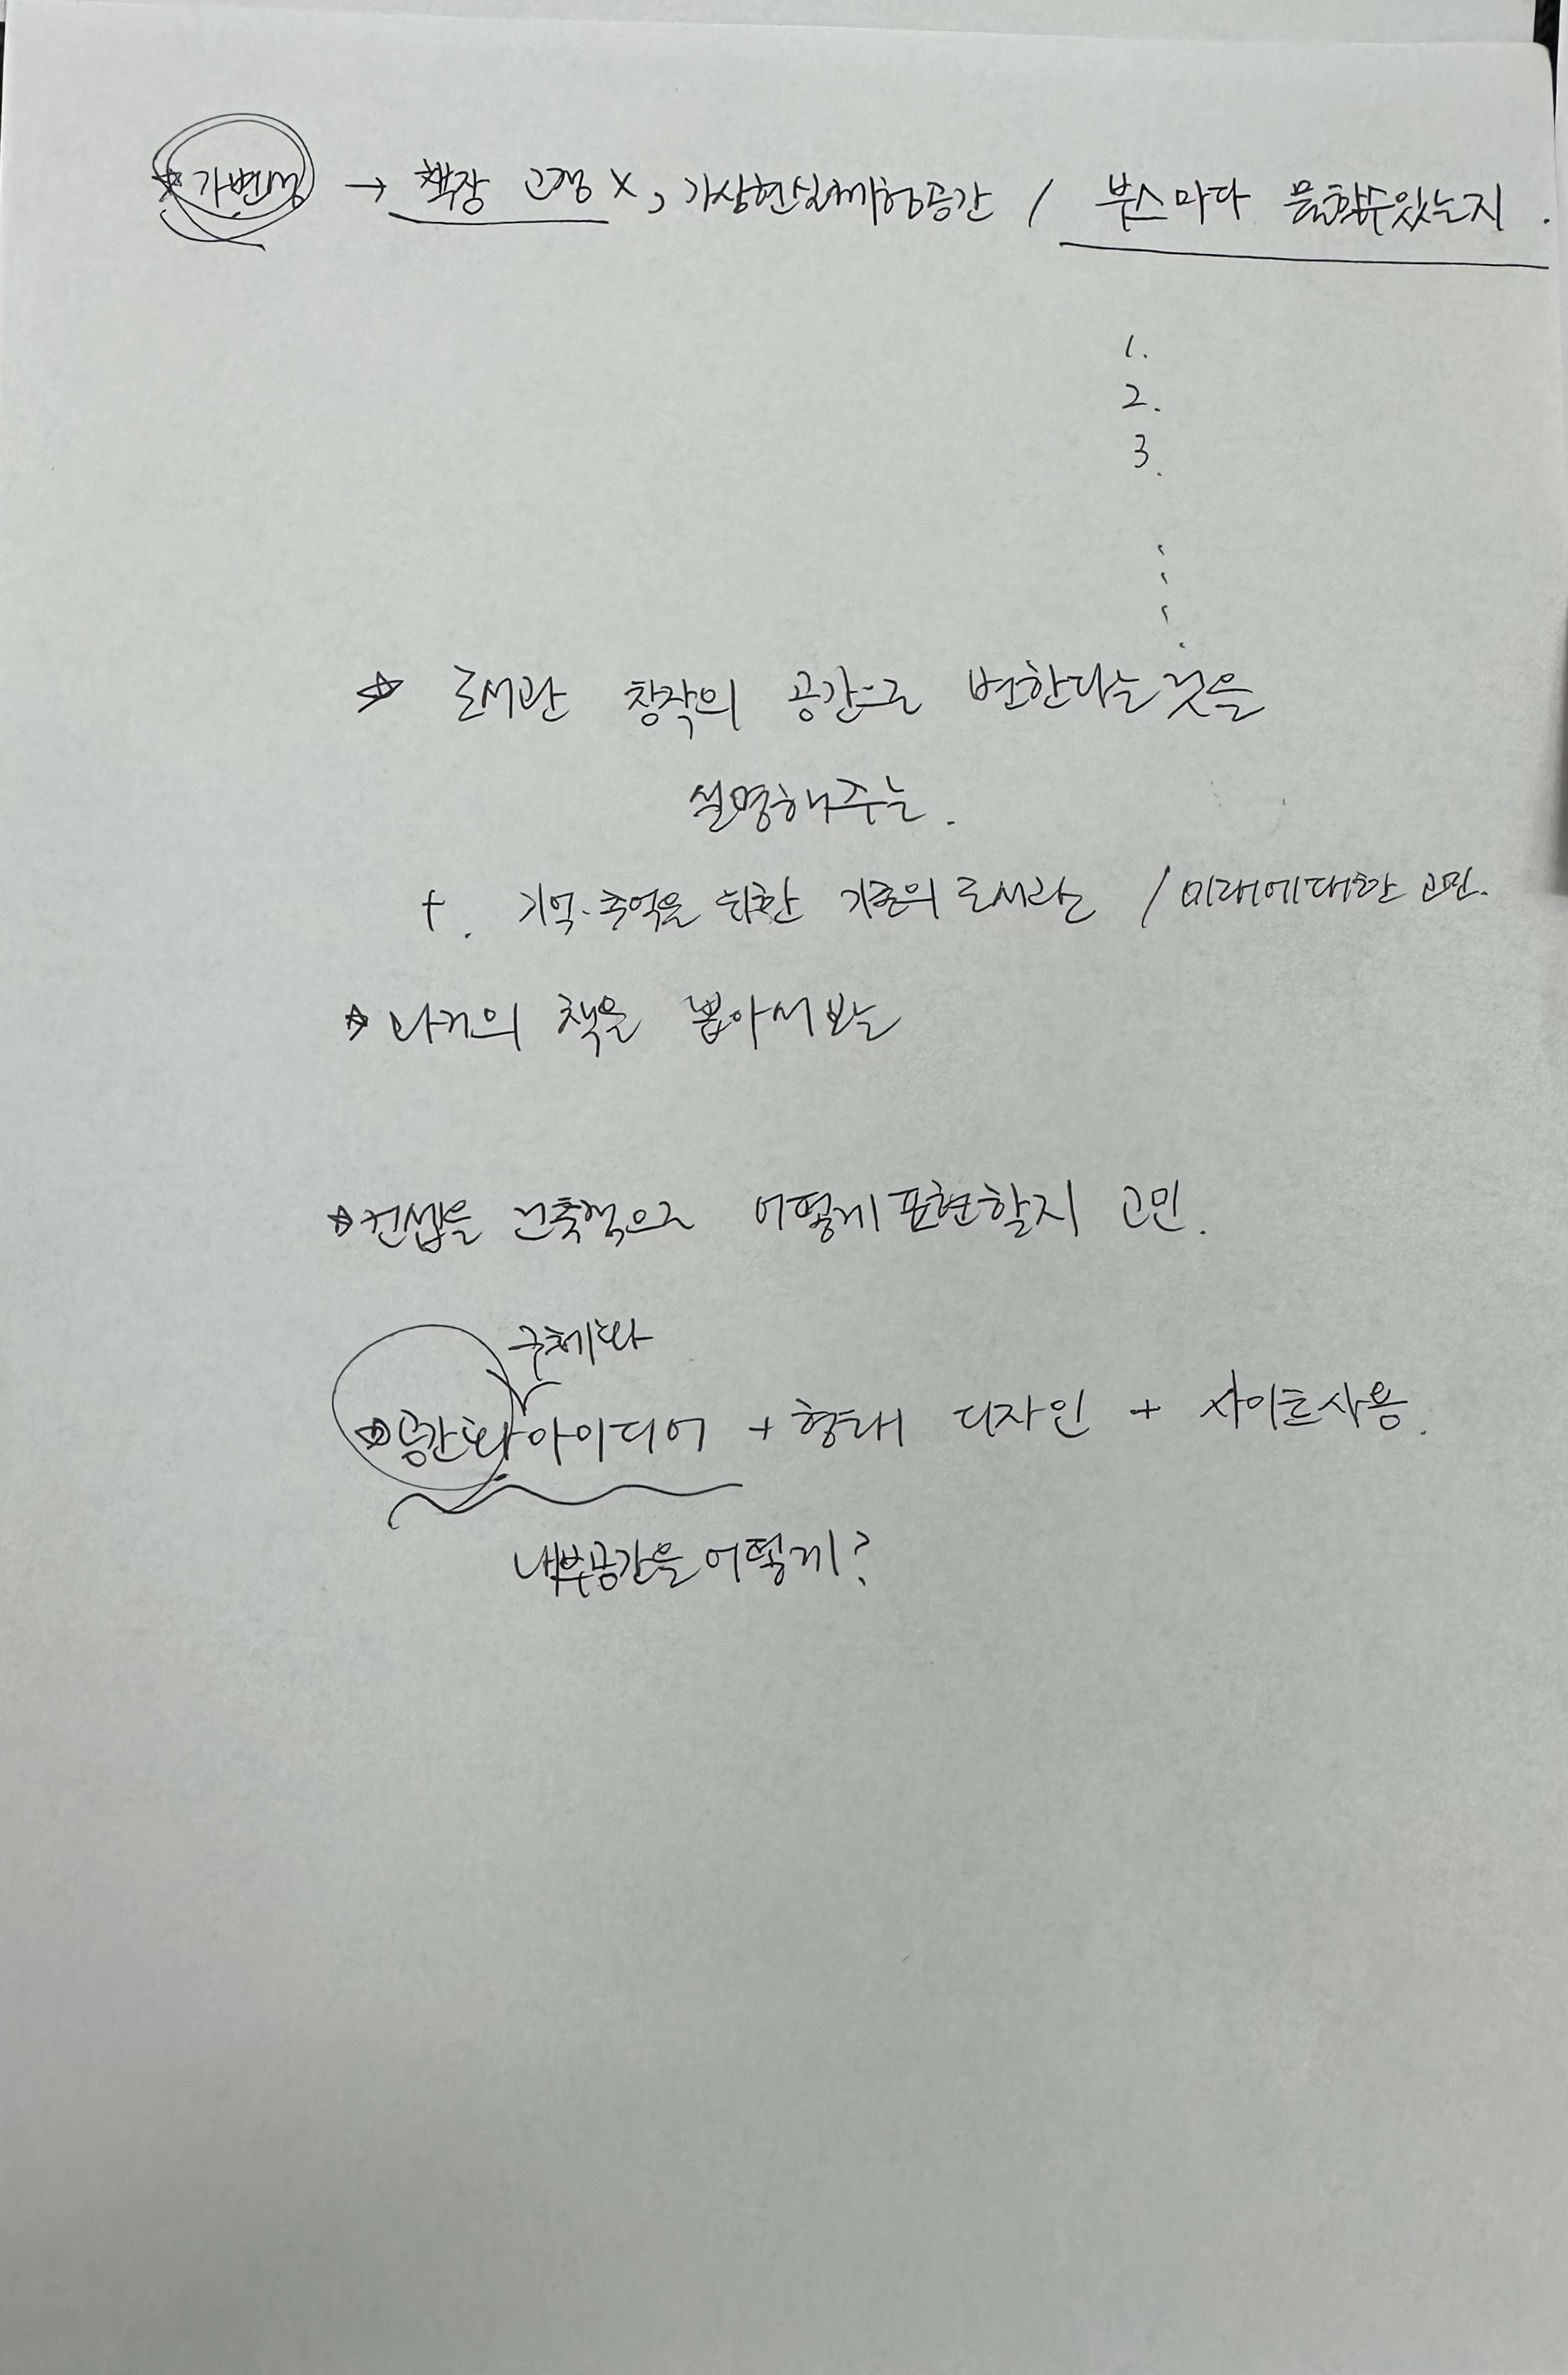 ☆ 가변성 → 책장 고정 X, 가상현실체험공간 / 부스마다 뭘할수있는지.
1.
2.
3.
☆ 도서관 창작의 공간으로 변한다는 것을
설명해주는.
+. 기억·추억을 위한 기존의 도서관 / 미래에대한 고민.
☆ 과거의 책을 뽑아서 보는
☆ 컨셉을 건축적으로 어떻게 표현할지 고민.
구체화
☆ 공간화 아이디어 + 형태 디자인 + 사이트사용.
내부공간을 어떻게?